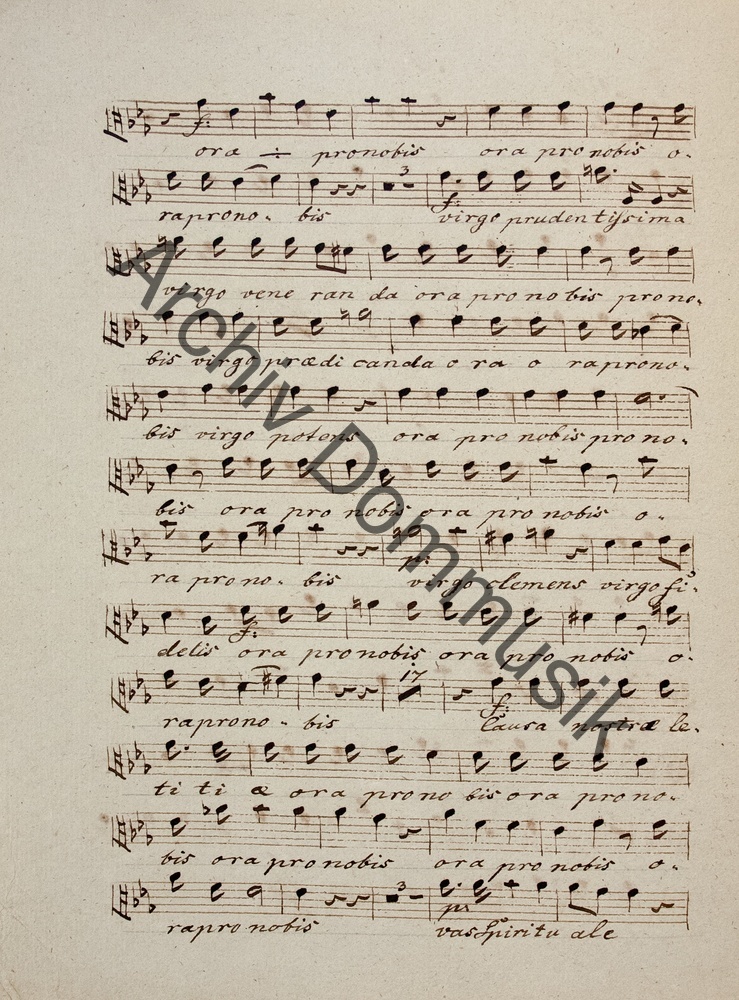 f:
ora ÷ pronobis ora pro nobis o-
3 f:
raprono- bis virgo prudentissima
virgo vene ran da ora pro no bis prono-
bis virgo prædi canda o ra o raprono-
bis virgo potens ora pro nobis pro no-
bis ora pro nobis ora pro nobis o-
p:
ra pro no- bis virgo clemens virgo fi-
f:
delis ora pro nobis ora pro nobis o-
17 f:
raprono- bis Causa nostræ le-
ti ti æ ora pro no bis ora pro no-
bis ora pro nobis ora pro nobis o-
3 p:
rapro nobis vas Spiritu ale
Archiv Dommusik